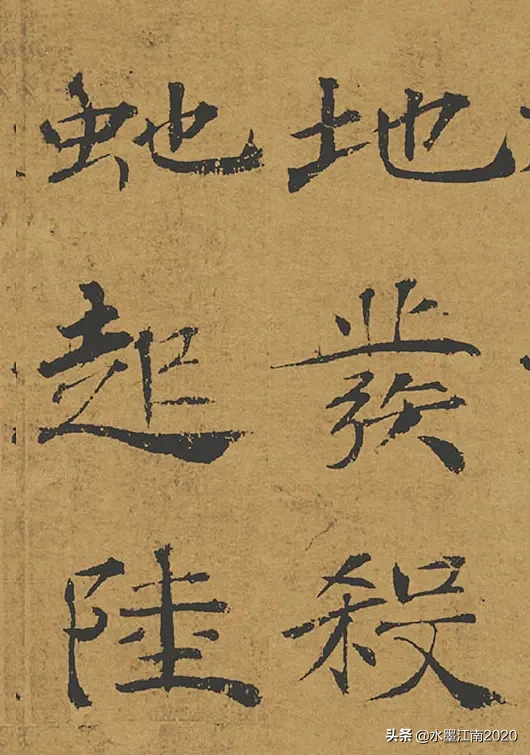 地發殺
虵起陸
头条 @水墨江南2020